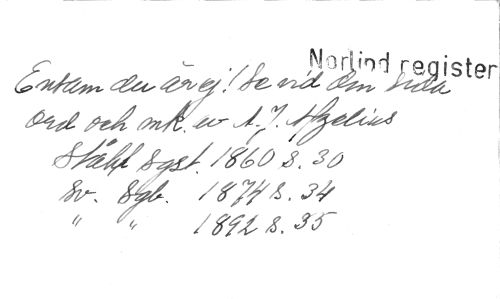 Norlind register
Ensam du är ej! Se vid din sida
Ord och mk. av A. J. Afzelius
Ståhl Sgst. 1860 S. 30
Sv. Sgb. 1874 S. 34
" " 1892 S. 35